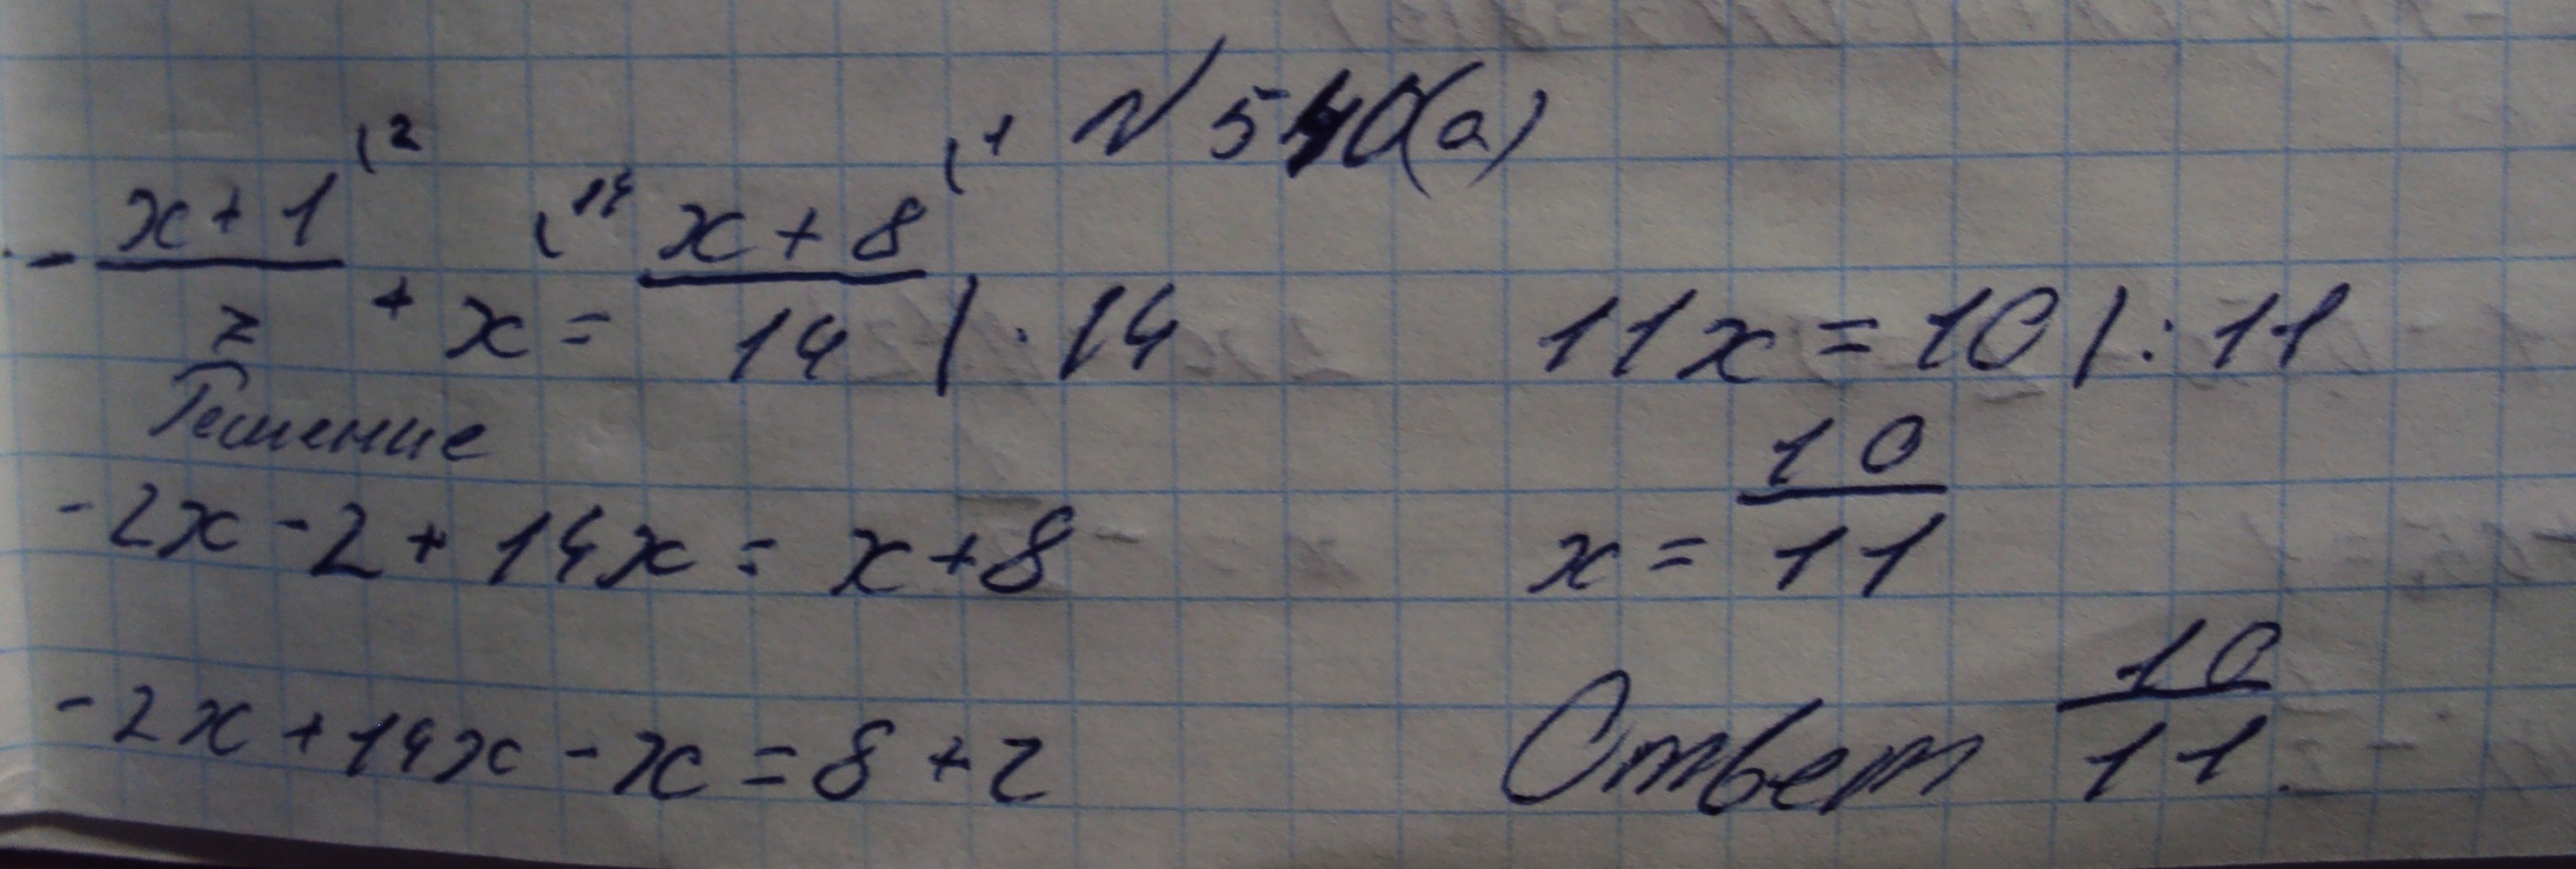 № 540(а)
- (x+1)/2 ⁽² + x ⁽¹⁴ = (x+8)/14 ⁽¹ | · 14
Решение
-2x - 2 + 14x = x + 8
-2x + 14x - x = 8 + 2
11x = 10 | : 11
x = 10/11
Ответ 10/11.